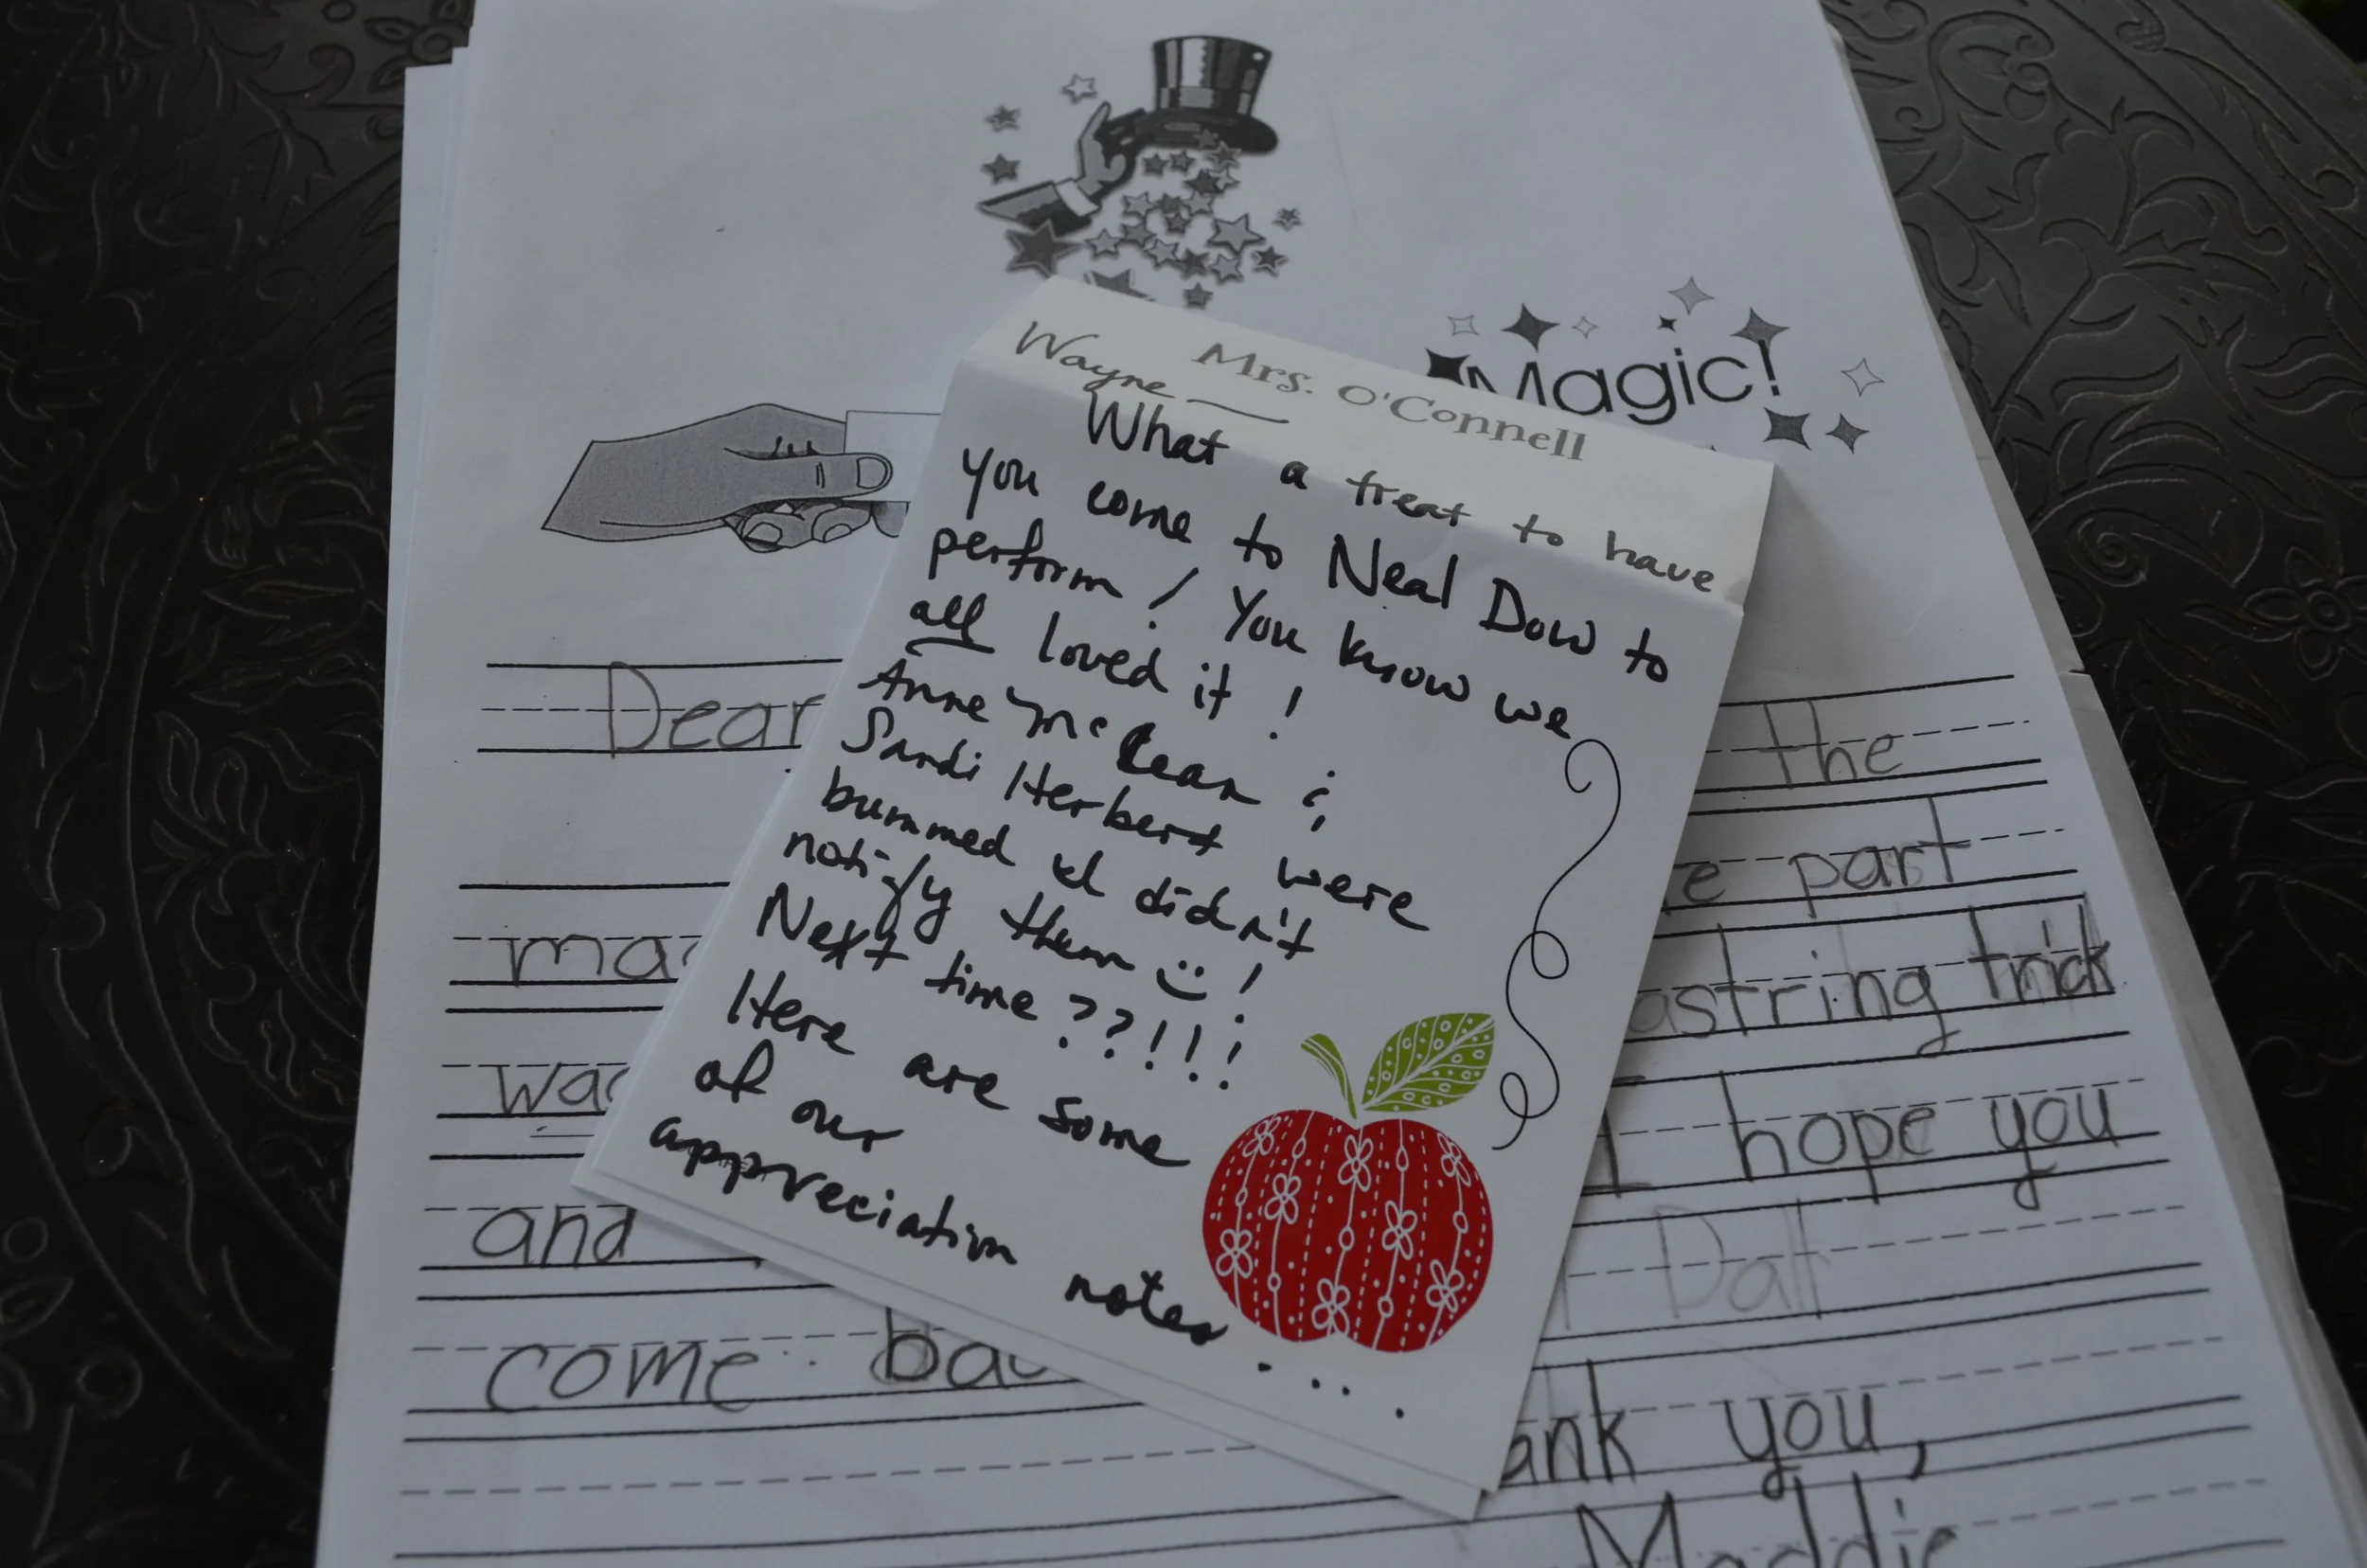 Magic!
Mrs. O'Connell
Wayne —
What a treat to have
you come to Neal Dow to
perform! You know we
all loved it!
Anne McLean &
Sandi Herbert were
bummed I didn't
notify them :) !
Next time ??!!!
Here are some
of our
appreciation
notes ....
Dear the
e part
astring trick
I hope you
and Dall
come bac
ank you,
Maddie